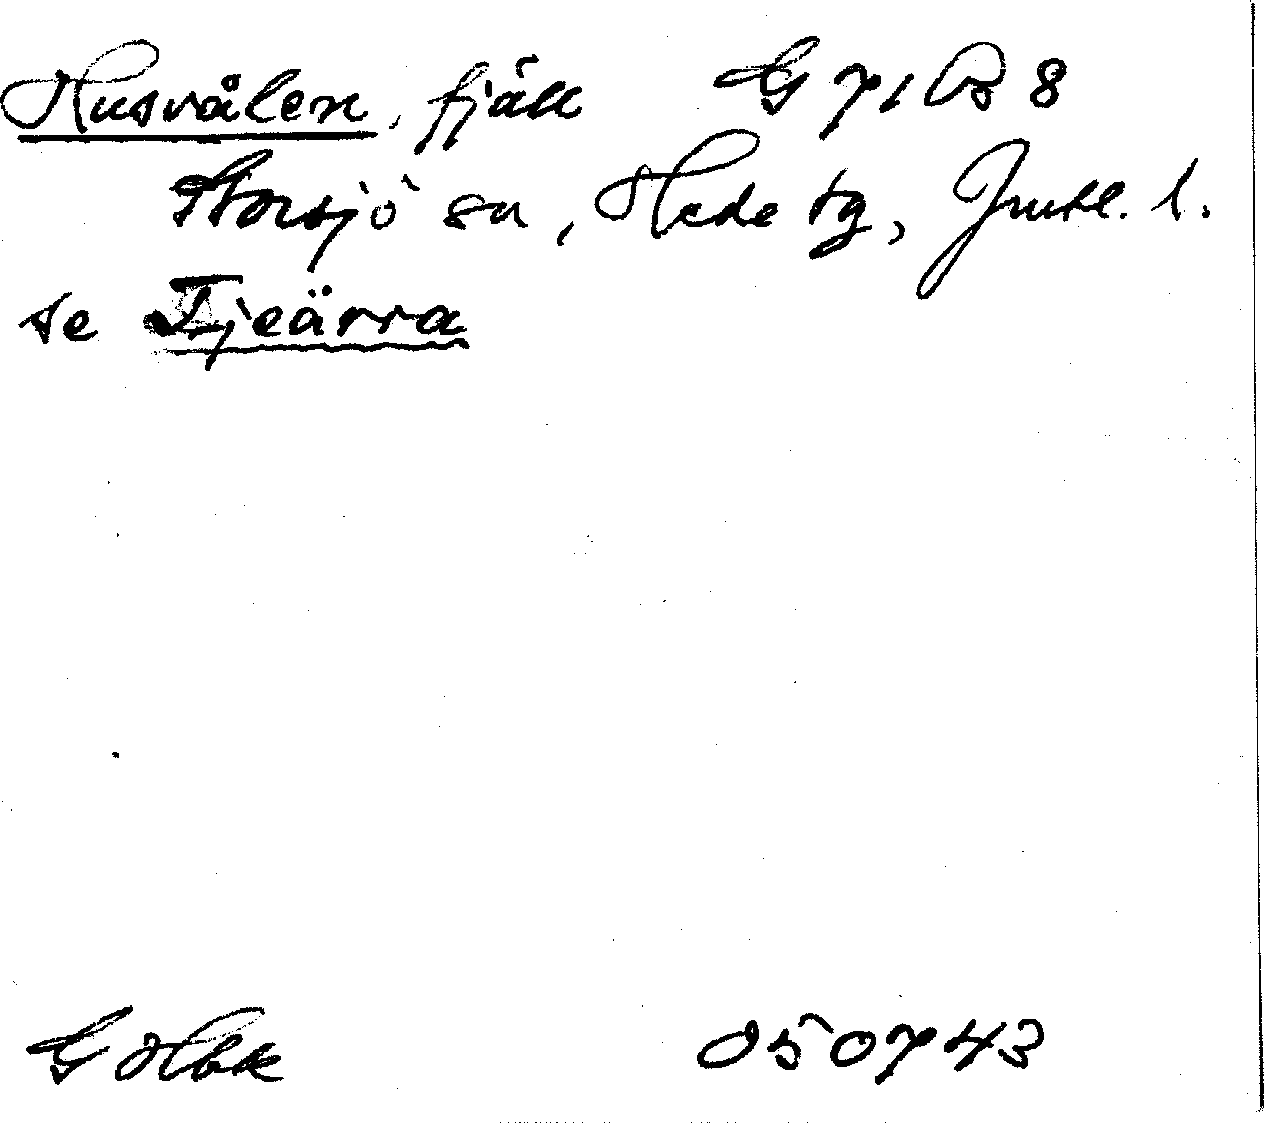 Husvålen, fjäll G 71 B 8
Storsjö sn, Hede tg, Jmtl. l.
se Tjeärra
G olbk 050743